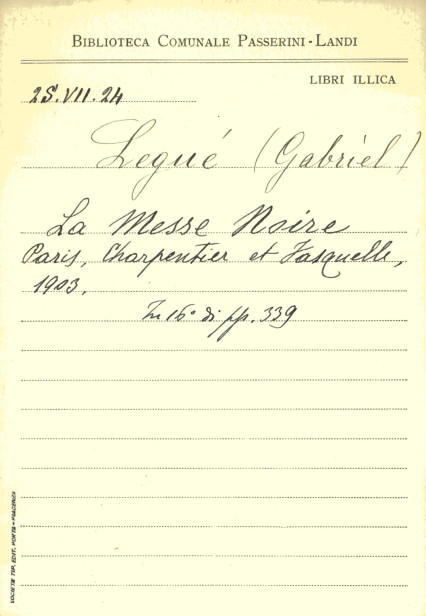 BIBLIOTECA COMUNALE PASSERINI-LANDI
LIBRI ILLICA
25.VII.24
Legué (Gabriel)
La Messe Noire
Paris, Charpentier et Fasquelle,
1903.
In 16° di pp. 339
SOCIETÀ TIP. EDIT. PORTA - PIACENZA